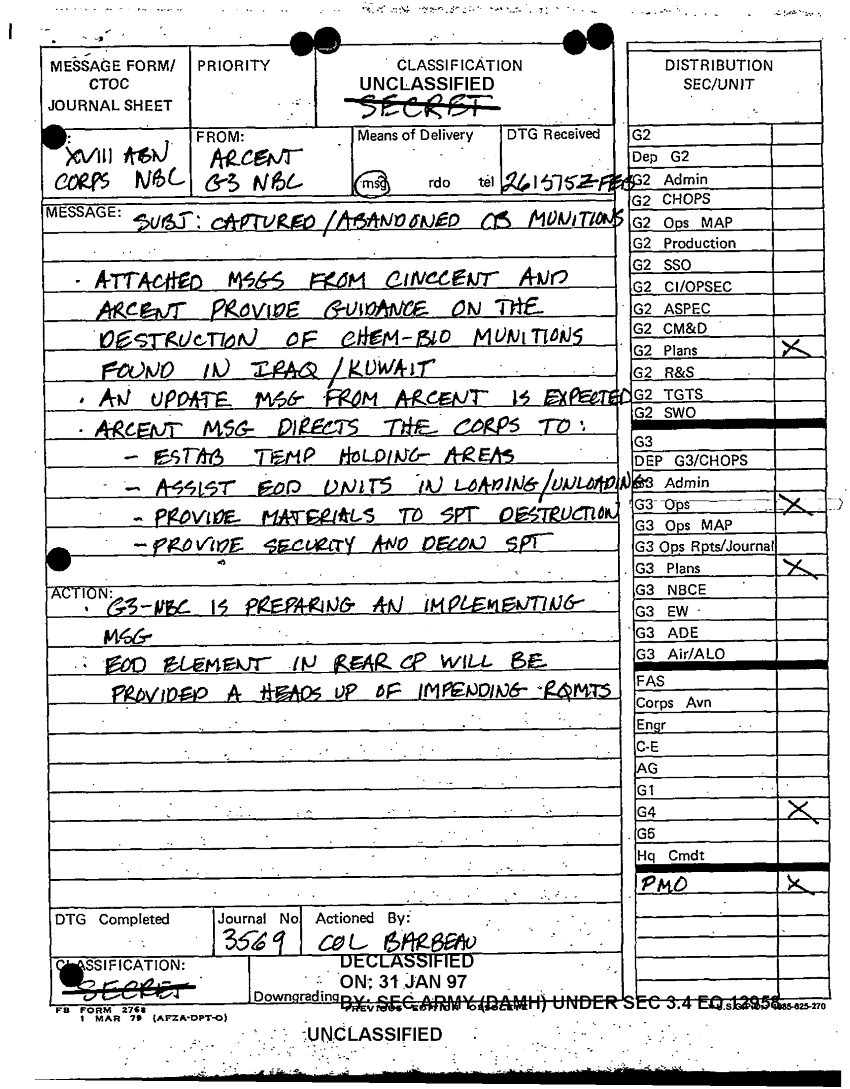 MESSAGE FORM/
CTOC
JOURNAL SHEET
PRIORITY
CLASSIFICATION
UNCLASSIFIED
SECRET
XVIII ABN
CORPS NBC
FROM:
ARCENT
G3 NBC
Means of Delivery
msg rdo tel
DTG Received
261575Z FEB
MESSAGE: SUBJ: CAPTURED/ABANDONED CB MUNITIONS
· ATTACHED MSGS FROM CINCCENT AND
ARCENT PROVIDE GUIDANCE ON THE
DESTRUCTION OF CHEM-BIO MUNITIONS
FOUND IN IRAQ/KUWAIT
· AN UPDATE MSG FROM ARCENT IS EXPECTED
· ARCENT MSG DIRECTS THE CORPS TO:
- ESTAB TEMP HOLDING AREAS
- ASSIST EOD UNITS IN LOADING/UNLOADING
- PROVIDE MATERIALS TO SPT DESTRUCTION
- PROVIDE SECURITY AND DECON SPT
ACTION:
· G3-NBC IS PREPARING AN IMPLEMENTING
MSG
· EOD ELEMENT IN REAR CP WILL BE
PROVIDED A HEADS UP OF IMPENDING RQMTS
DTG Completed
Journal No
3569
Actioned By:
COL BARBEAU
CLASSIFICATION:
SECRET
Downgrading
DECLASSIFIED
ON: 31 JAN 97
BY: SEC ARMY (DAMH) UNDER SEC 3.4 EO 12958
FB FORM 2768
1 MAR 79 (AFZA-DPT-O)
PREVIOUS EDITION OBSOLETE
UNCLASSIFIED
DISTRIBUTION
SEC/UNIT
G2
Dep G2
G2 Admin
G2 CHOPS
G2 Ops MAP
G2 Production
G2 SSO
G2 CI/OPSEC
G2 ASPEC
G2 CM&D
G2 Plans X
G2 R&S
G2 TGTS
G2 SWO
G3
DEP G3/CHOPS
G3 Admin
G3 Ops X
G3 Ops MAP
G3 Ops Rpts/Journal
G3 Plans X
G3 NBCE
G3 EW
G3 ADE
G3 Air/ALO
FAS
Corps Avn
Engr
C-E
AG
G1
G4 X
G5
Hq Cmdt
PMO X